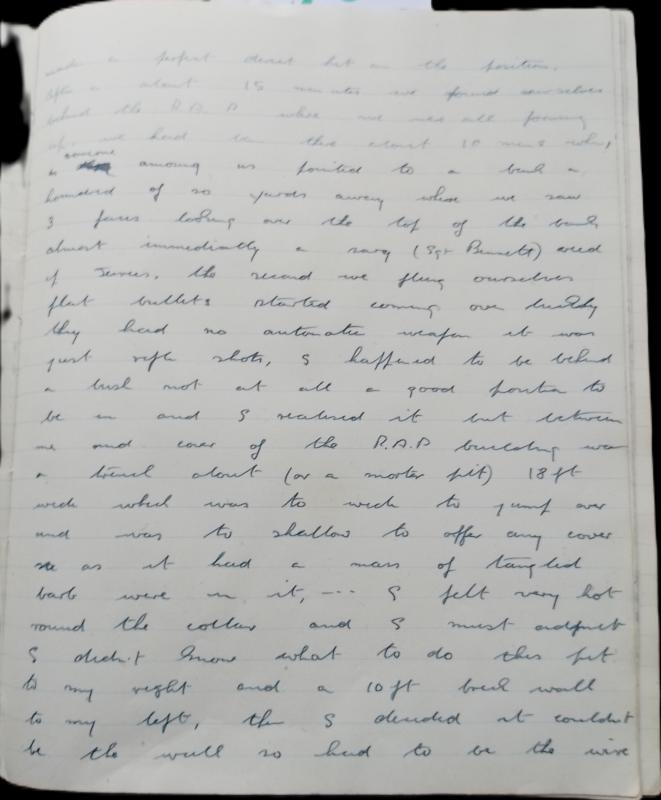 made a perfect direct hit on the position.
After a about 15 minutes we found ourselves
behind the R.A.P where we were all forming
up, we had been there about 10 mins when
someone among us pointed to a bank a
hundred of so yards away where we saw
3 faces looking over the top of the bank
almost immediately a sarg (Sgt Bennett)
of Jerries. the second we flung ourselves
flat bullets started coming over luckily
they had no automatic weapon it was
just rifle shots, I happened to be behind
a bush not at all a good position to
be in and I realised it but between
me and cover of the R.A.P building was
a trench about (or a morter pit) 18 ft
wide which was to wide to jump over
and was to shallow to offer any cover
as it had a mass of tangled
barb were in it, --- I felt very hot
round the collar and I must admit
I didn't know what to do this pit
to my right and a 10 ft brick wall
to my left, then I decided it couldn't
be the wall so had to be the wire